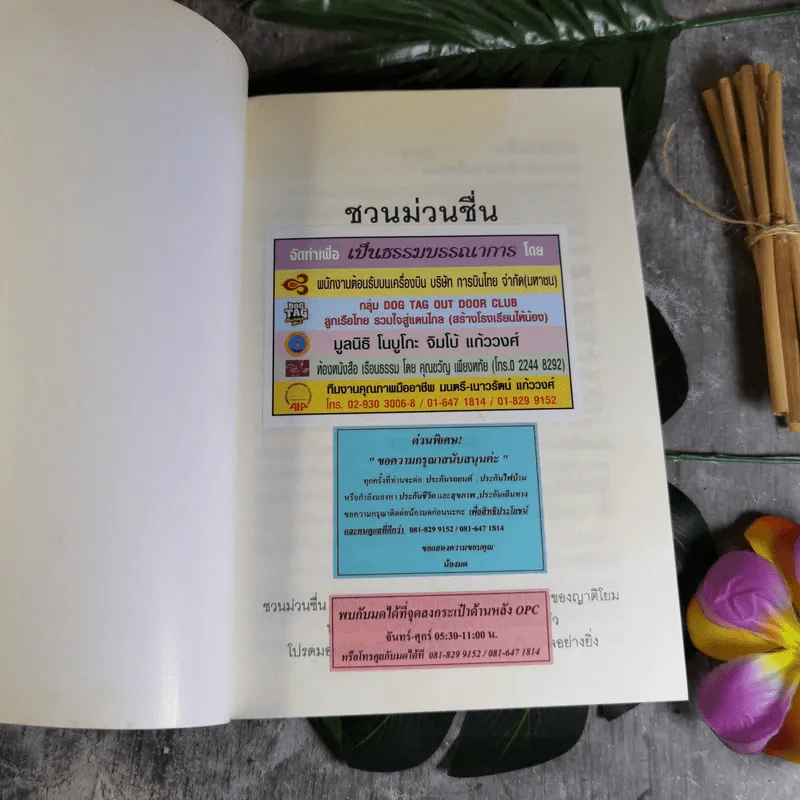 ชวนม่วนชื่น
จัดทำเพื่อ เป็นธรรมบรรณาการ โดย
พนักงานต้อนรับบนเครื่องบิน บริษัท การบินไทย จำกัด(มหาชน)
DOG TAG
กลุ่ม DOG TAG OUT DOOR CLUB
ลูกเรือไทย รวมใจสู่แดนไกล (สร้างโรงเรียนให้น้อง)
มูลนิธิ โนบูโกะ จิมโบ้ แก้ววงศ์
ห้องหนังสือ เรือนธรรม โดย คุณขวัญ เพียงหทัย (โทร.0 2244 8292)
ทีมงานคุณภาพมืออาชีพ มนตรี-เนาวรัตน์ แก้ววงศ์
AIA
โทร. 02-930 3006-8 / 01-647 1814 / 01-829 9152
ด่วนพิเศษ!
" ขอความกรุณาสนับสนุนค่ะ "
ทุกครั้งที่ท่านจะต่อ ประกันรถยนต์ , ประกันไฟบ้าน
หรือกำลังมองหา ประกันชีวิต และสุขภาพ ,ประกันเดินทาง
ขอความกรุณาติดต่อน้องมดก่อนนะคะ เพื่อสิทธิประโยชน์
และคนดูแลที่ดีกว่า 081-829 9152 / 081-647 1814
ขอแสดงความขอบคุณ
น้องมด
ชวนม่วนชื่น ของญาติโยม
พบกับมดได้ที่จุดลงกระเป๋าด้านหลัง OPC
จันทร์-ศุกร์ 05:30-11:00 น.
โปรดมอ อย่างยิ่ง
หรือโทรคุยกับมดได้ที่ 081-829 9152 / 081-647 1814